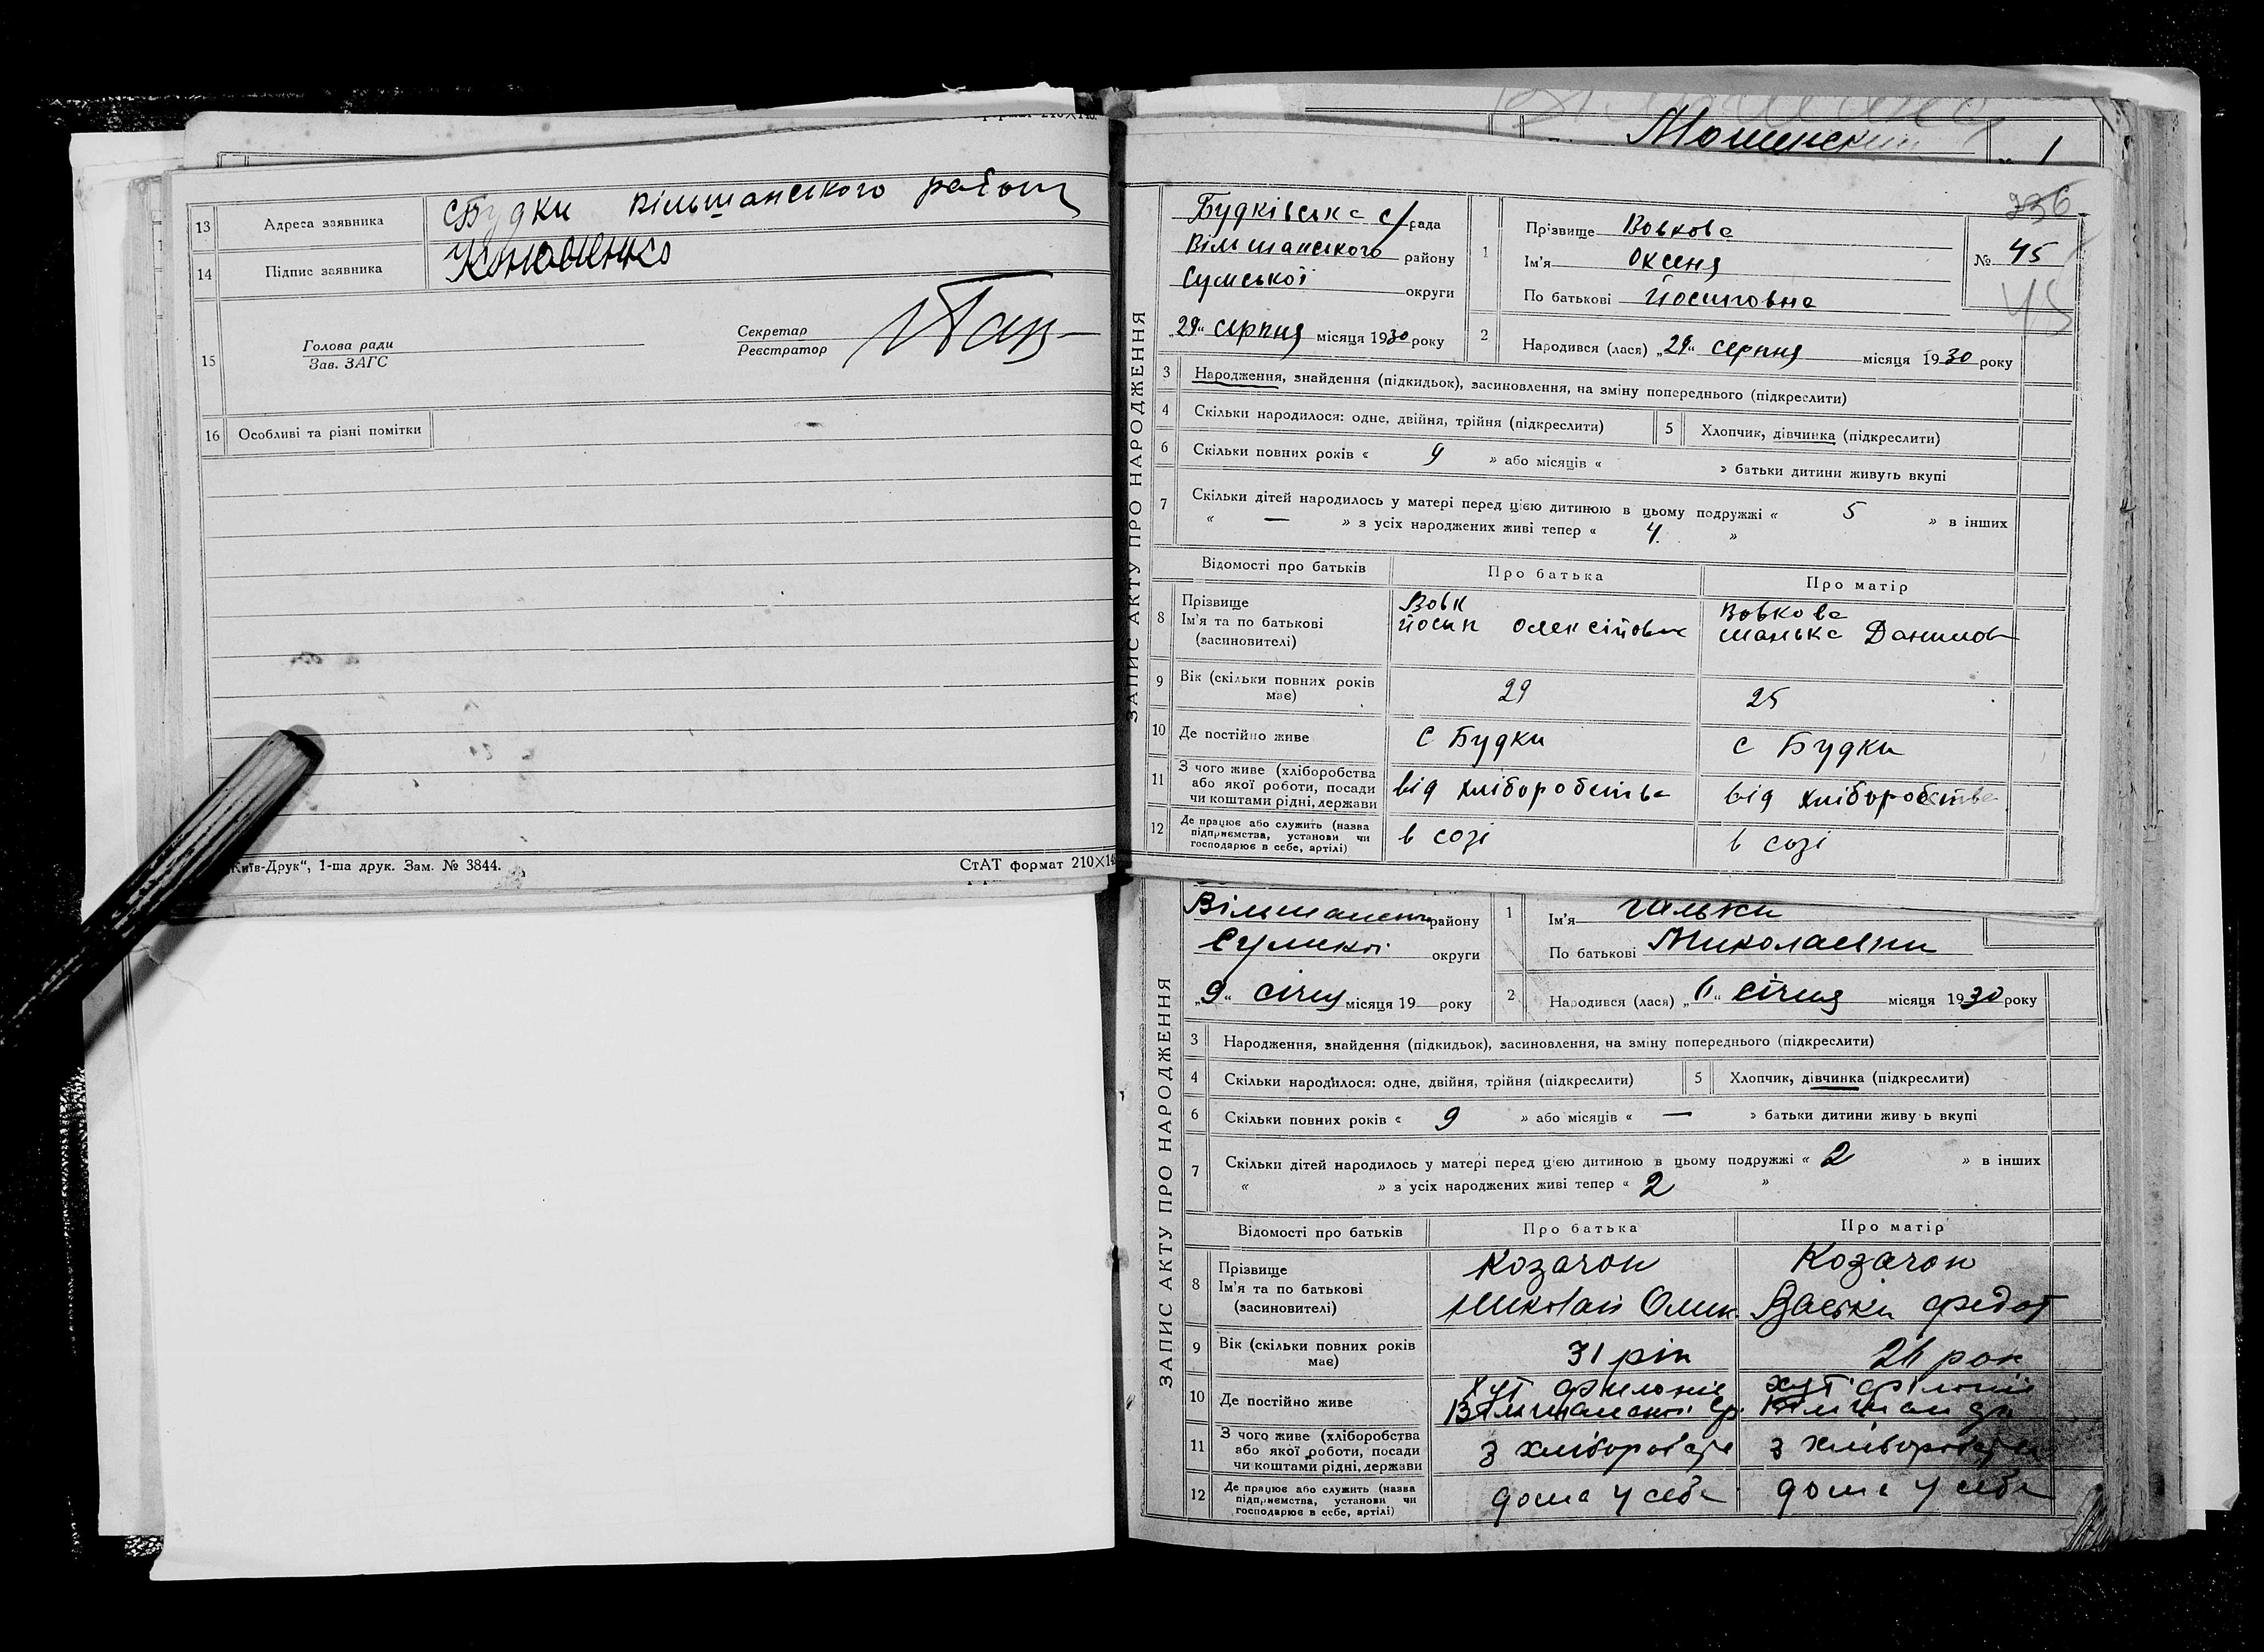 13 Адреса заявника с Будки Вільшанського району
14 Підпис заявника
15 Голова ради
Зав. ЗАГС
Секретар
Реєстратор
16 Особливі та різні помітки
Київ-Друк“, 1-ша друк. Зам. № 3844.
СтАТ формат 210×14
1
ЗАПИС АКТУ ПРО НАРОДЖЕННЯ
236
Будківська с/рада
Вільшанського району
Сумської округи
„29“ серпня місяця 1930 року
1 Прізвище Вовкова
Ім'я Оксеня
По батькові Йосиповна
№ 45
45
2 Народився (лася) „29“ серпня місяця 1930 року
3 Народження, знайдення (підкидьок), засиновлення, на зміну попереднього (підкреслити)
4 Скільки народилося: одне, двійня, трійня (підкреслити) 5 Хлопчик, дівчинка (підкреслити)
6 Скільки повних років « 9 » або місяців « » батьки дитини живуть вкупі
7 Скільки дітей народилось у матері перед цією дитиною в цьому подружжі « 5 » в інших
« — » з усіх народжених живі тепер « 4. »
Відомості про батьків Про батька Про матір
8 Прізвище Вовк Вовкова
Ім'я та по батькові Йосип Олексійович Манька Данилов
(засиновителі)
9 Вік (скільки повних років має) 29 25
10 Де постійно живе с Будки с Будки
11 З чого живе (хліборобства
або якої роботи, посади від хліборобства від хліборобства
чи коштами рідні, держави
12 Де працює або служить (назва
підприємства, установи чи в созі в созі
господарює в себе, артілі)
ЗАПИС АКТУ ПРО НАРОДЖЕННЯ
району
Сумської округи
„9“ січня місяця 19 року
1 Ім'я Гальки
По батькові Миколаевни
2 Народився (лася) січня місяця 1930 року
3 Народження, знайдення (підкидьок), засиновлення, на зміну попереднього (підкреслити)
4 Скільки народилося: одне, двійня, трійня (підкреслити) 5 Хлопчик, дівчинка (підкреслити)
6 Скільки повних років « 9 » або місяців « — » батьки дитини живуть вкупі
7 Скільки дітей народилось у матері перед цією дитиною в цьому подружжі « 2 » в інших
« » з усіх народжених живі тепер « 2 »
Відомості про батьків Про батька Про матір
8 Прізвище Козачок Козачок
Ім'я та по батькові Николай Федот
(засиновителі)
9 Вік (скільки повних років має) 31 рік рок
10 Де постійно живе хут хут
11 З чого живе (хліборобства
або якої роботи, посади з з
чи коштами рідні, держави
12 Де працює або служить (назва
підприємства, установи чи дома у себе дома у себе
господарює в себе, артілі)